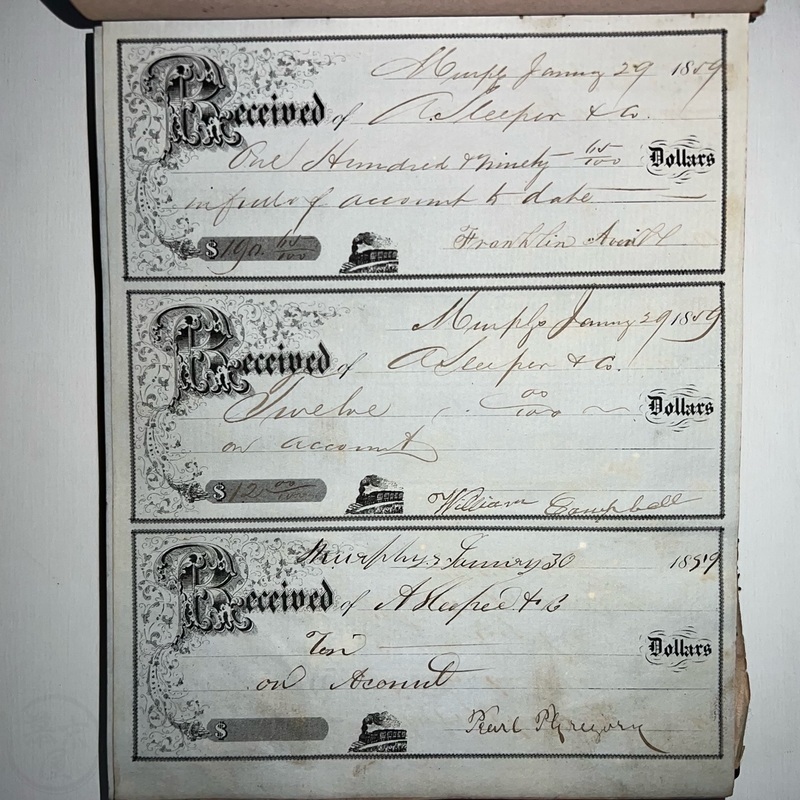 Murphys January 29 1859
Received of A. Sleeper & Co.
One Hundred & Ninety 65/100 Dollars
in full of account to date
$190. 65/100 Franklin
Murphys January 29 1859
Received of A Sleeper & Co.
Twelve 00/100 Dollars
on account
$12 00/100 William Campbell
Murphys January 30 1859
Received of A Sleeper & Co
Ten Dollars
on Acount
$ Pearl P Gregory